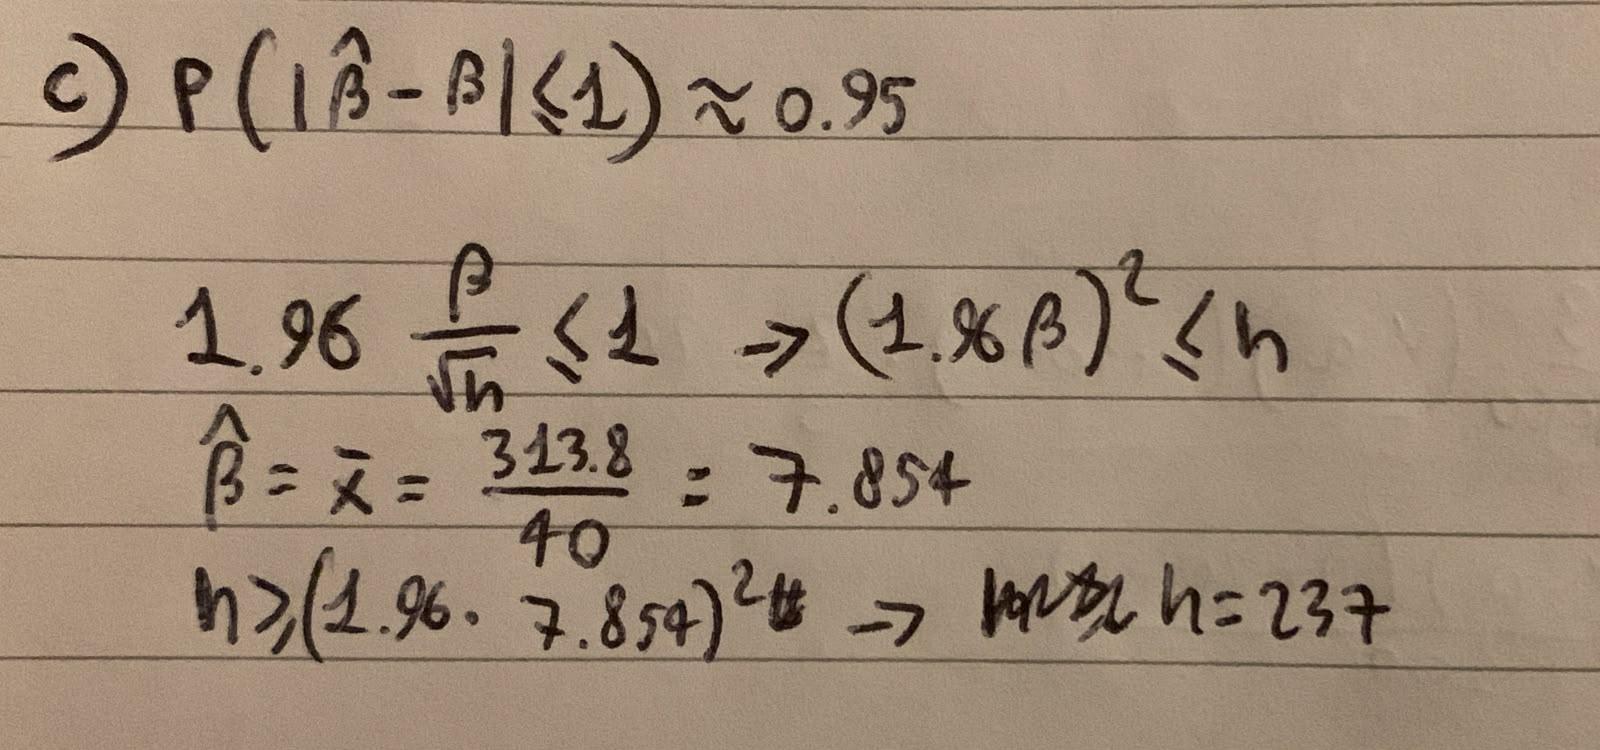 c) P(|β̂ - β| ≤ 1) ≈ 0.95
1.96 β/√n ≤ 1 → (1.96 β)² ≤ n
β̂ = x̄ = 313.8/40 = 7.854
n ≥ (1.96 · 7.854)² → n = 237